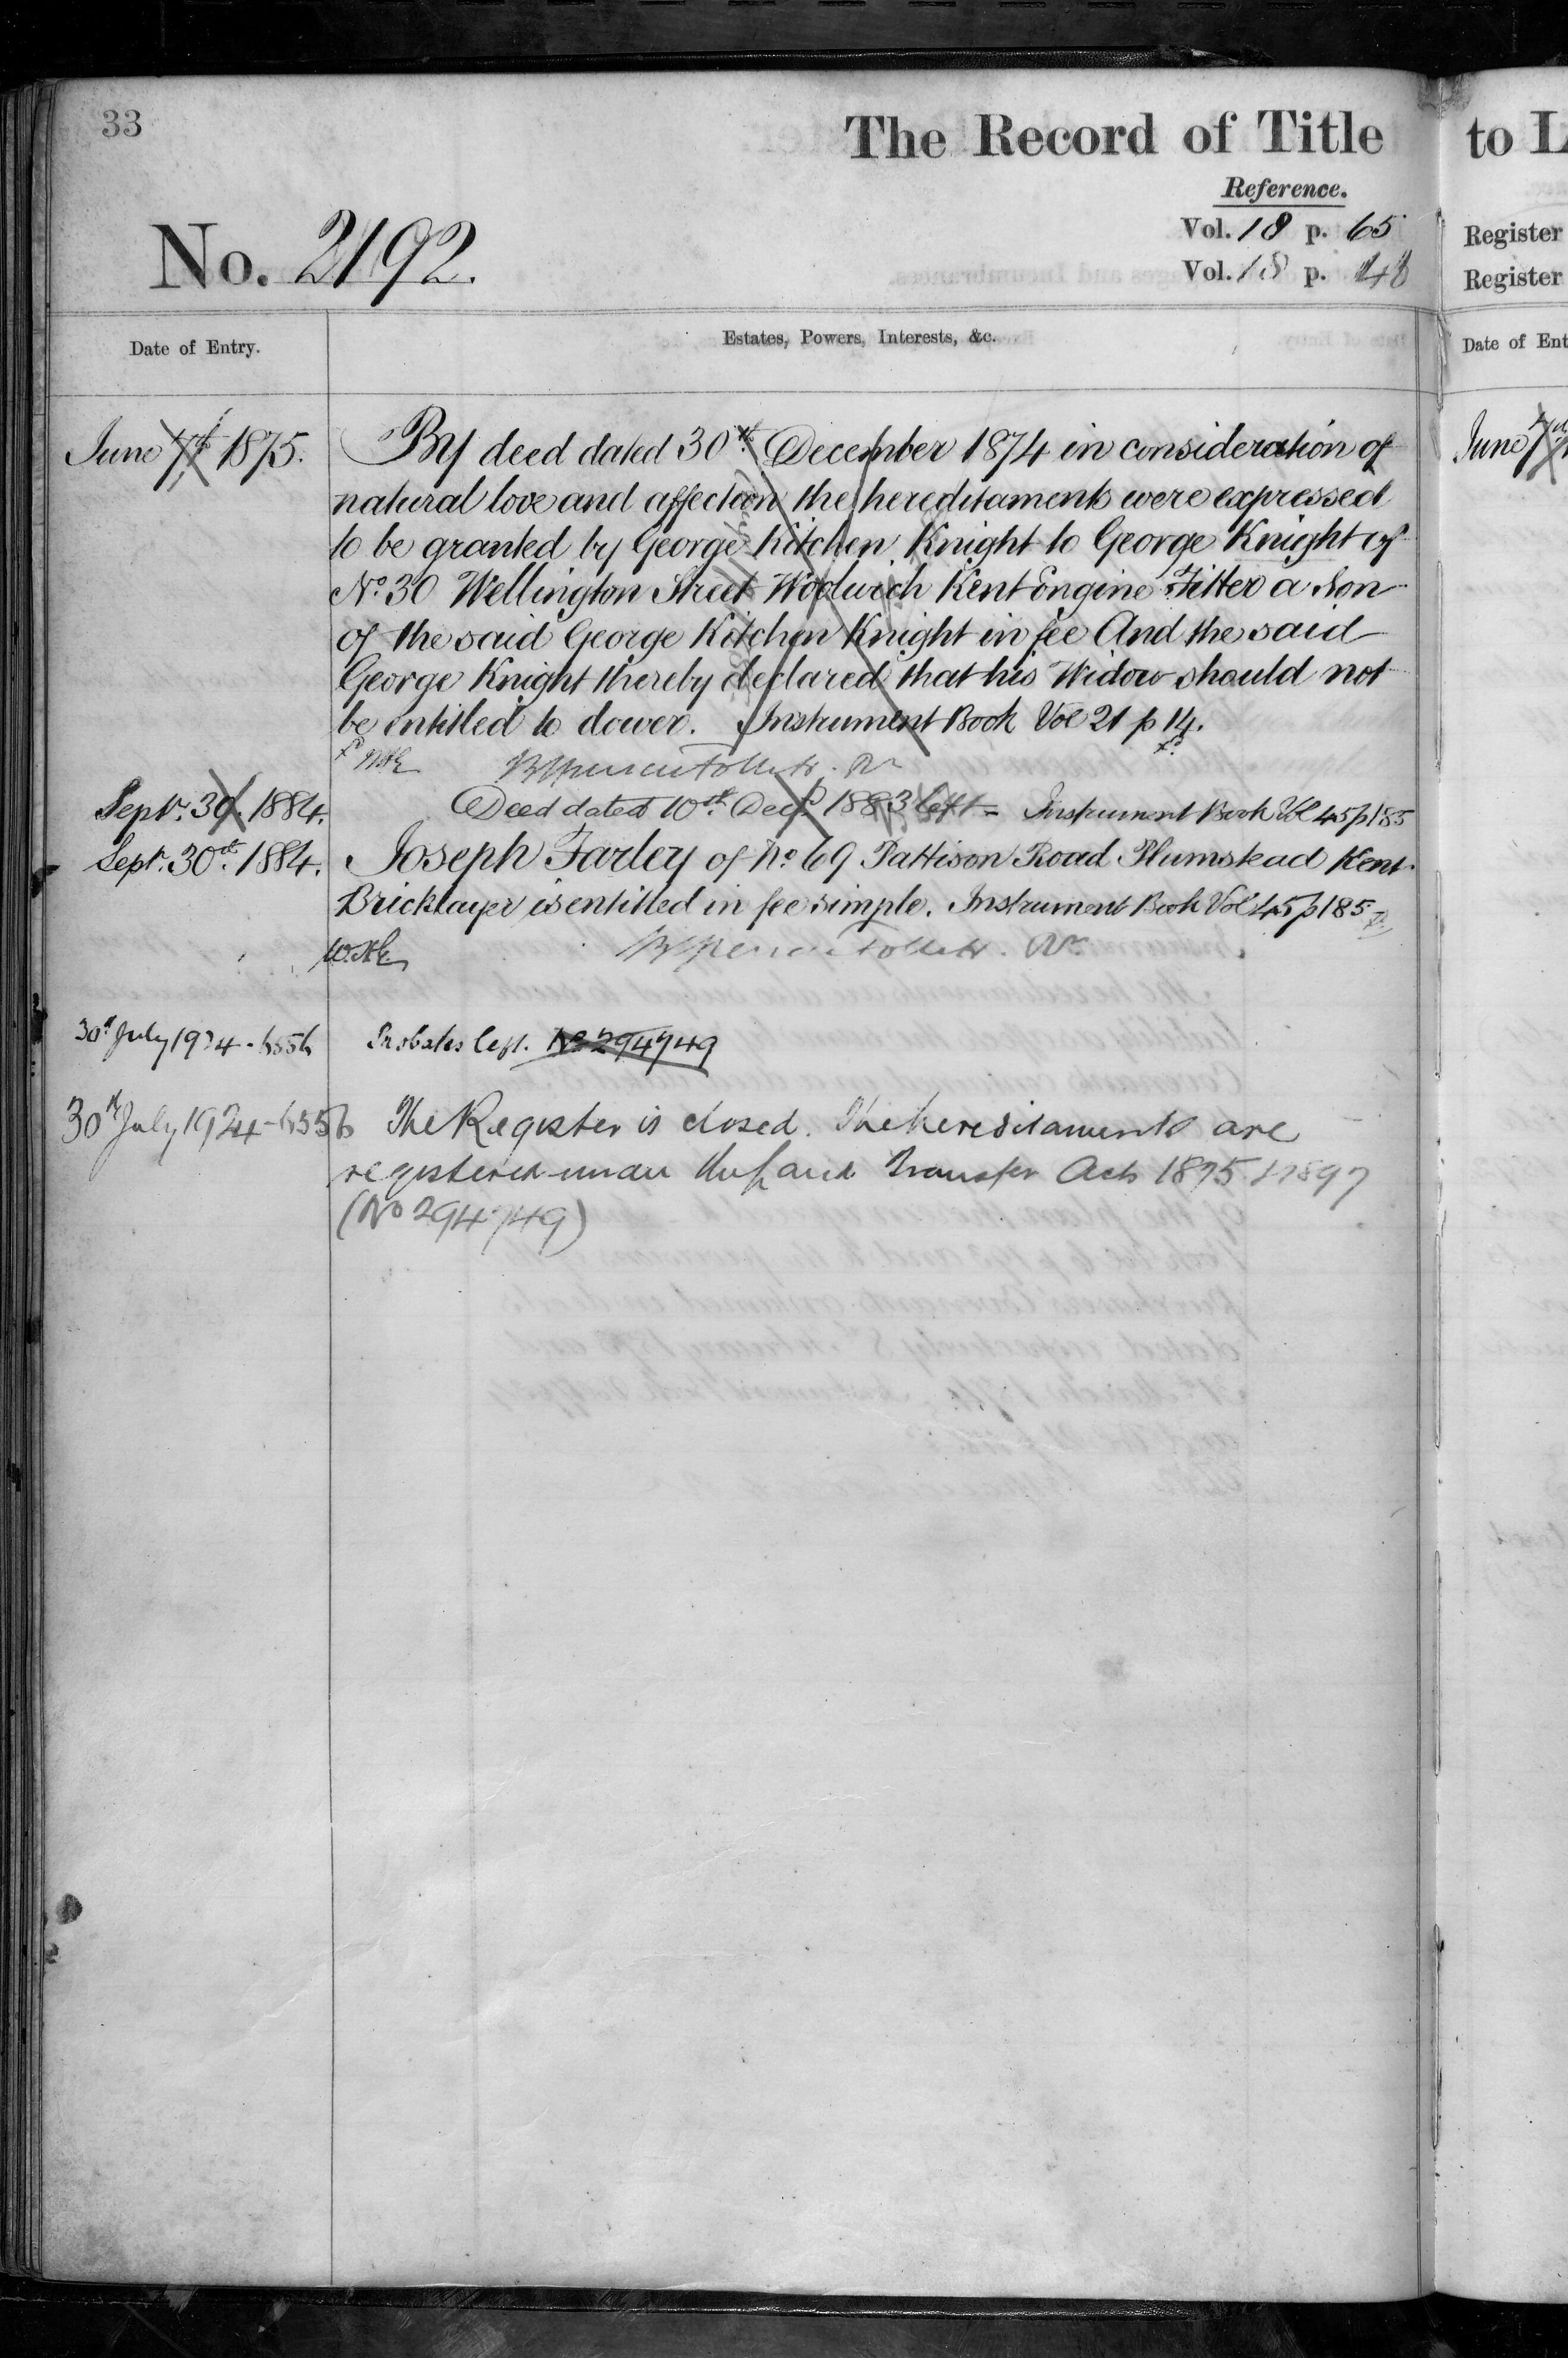 33
The Record of Title
Reference.
No. 2192.
Vol. 18 p. 65
Vol. 18 p. 48
Date of Entry.
Estates, Powers, Interests, &c.
June 7th 1875.
By deed dated 30th December 1874 in consideration of
natural love and affection the hereditaments were expressed
to be granted by George Kitchen Knight to George Knight of
No. 30 Wellington Street Woolwich Kent Engine Fitter a Son
of the said George Kitchen Knight in fee And the said
George Knight thereby declared that his Widow should not
be entitled to dower. Instrument Book Vol 21 p 14.
Sept. 30. 1884.
Deed dated 10th Decr. 1883 left = Instrument Book Vol 45 p 185
Sept. 30th. 1884.
Joseph Farley of No. 69 Pattison Road Plumstead Kent.
Bricklayer is entitled in fee simple. Instrument Book Vol 45 p 185.
30th July 1924
Probates left. No 294749
30th July 1924
The Register is closed. The hereditaments are
registered under the Land Transfer Acts 1875 & 1897
(No 294749)
to L
Register
Register
Date of Ent
June 7th